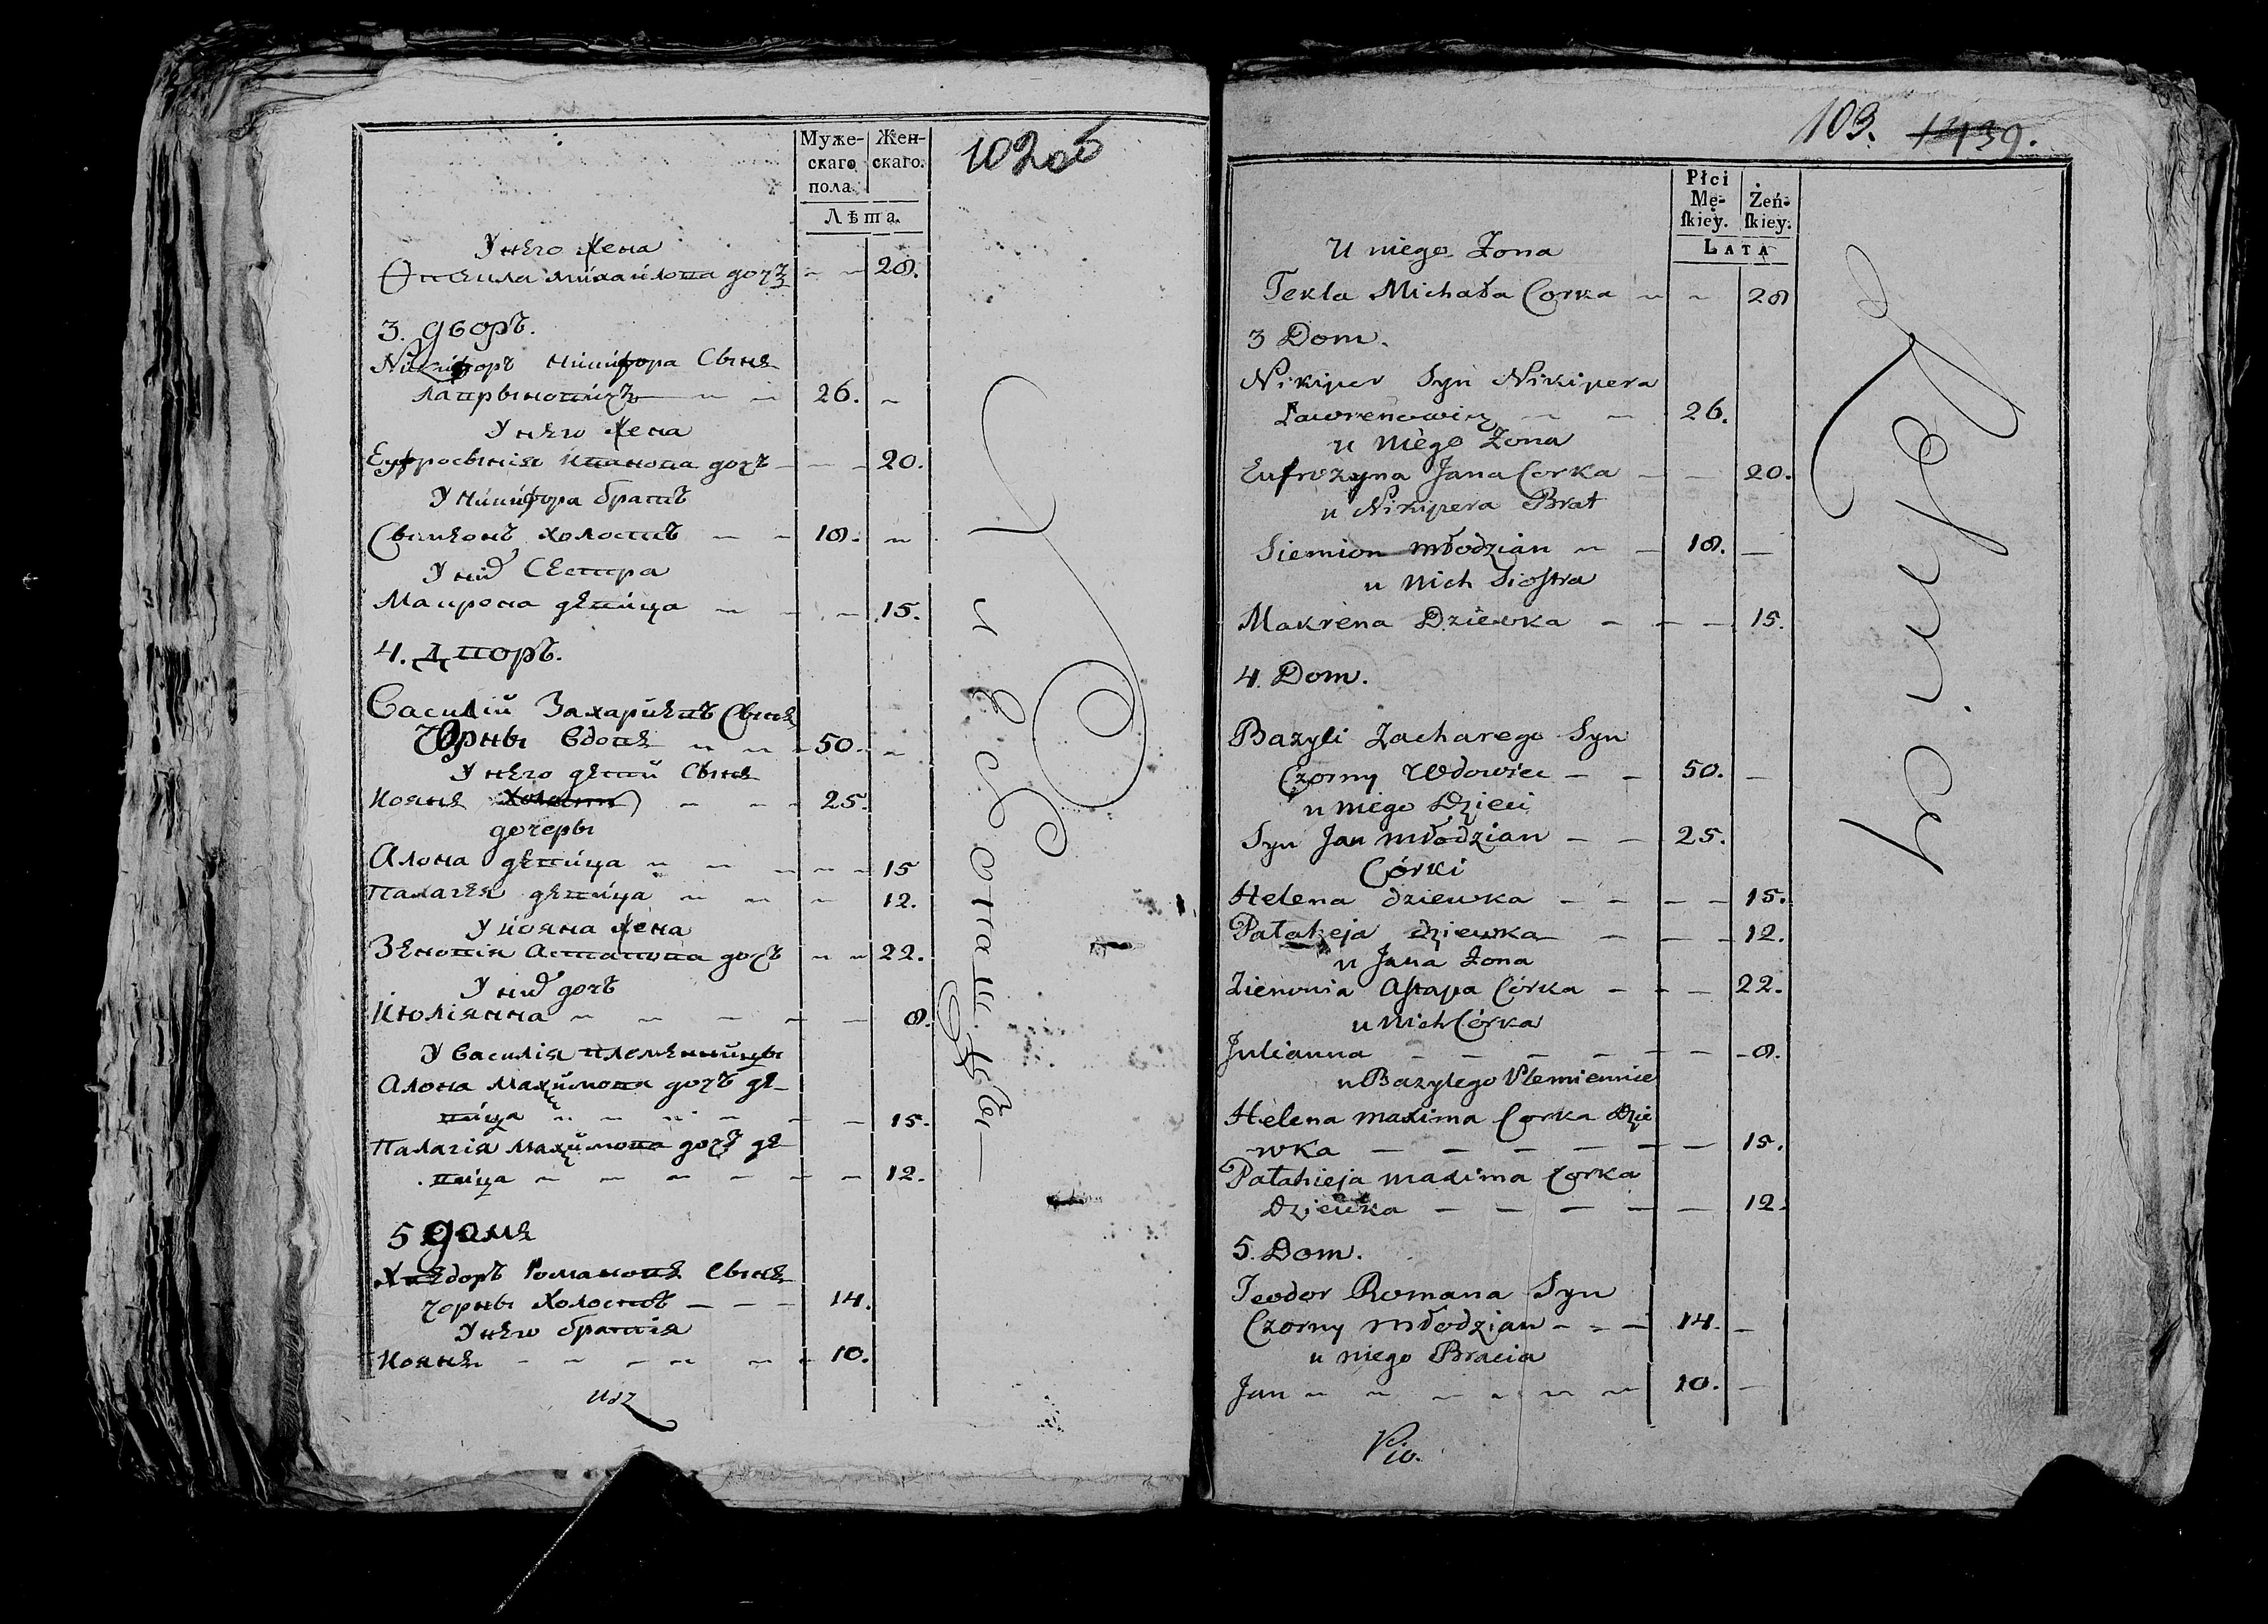 Муже-
скаго
пола.
Жен-
скаго.
Лѣта.
102об
У него жена
Михайлова дочъ 28.
3. дворъ.
Никифоръ Никифора Сынъ
26.
У него жена
Еуфросынія Иванова дочъ 20.
У Никифора братъ
Сымяонъ холостъ 18.
У них Сестра
Макрона девица 15.
4. Дворъ.
Василій Захариевъ Сынъ
Чорны вдовъ 50.
У него дети Сынъ
Иоанъ холостъ 25.
дочеры
Алона девица 15
Палагея девица 12.
У Иоана жена
Зеновія Астапова дочъ 22.
У них дочъ
Июліанна 8.
У Василія племенницы
Алона Махимова дочъ де-
вица 15.
Палагія Махимова дочъ де-
вица 12.
5 домъ
Хведоръ Романовъ Сынъ
чорны Холостъ 14.
У него братія
Иоанъ 10.
103. 1439.
Płci
Mę-
ſkiey.
Żeń-
ſkiey.
LATA
U niego Żona
Tekla Michała Corka 28
3 Dom.
Nikiper Syn Nikipera
Lawrenowicz 26.
u niego Żona
Eufrozyna Jana Corka 20.
u Nikipera Brat
Siemion młodzian 18.
u nich Siostra
Makrena Dziewka 15.
4. Dom.
Bazyli Zacharego Syn
Czorny Wdowiec 50.
u niego Dzieci
Syn Jan młodzian 25.
Córki
Helena dziewka 15.
Pałaheja dziewka 12.
u Jana Żona
Zienowia Astapa Córka 22.
u nich Córka
Julianna 8.
u Bazylego Plemiennice
Helena Maxima Corka Dzie
wka 15.
Pałahieja Maxima Corka
Dziewka 12.
5. Dom.
Teodor Romana Syn
Czorny młodzian 14.
u niego Bracia
Jan 10.